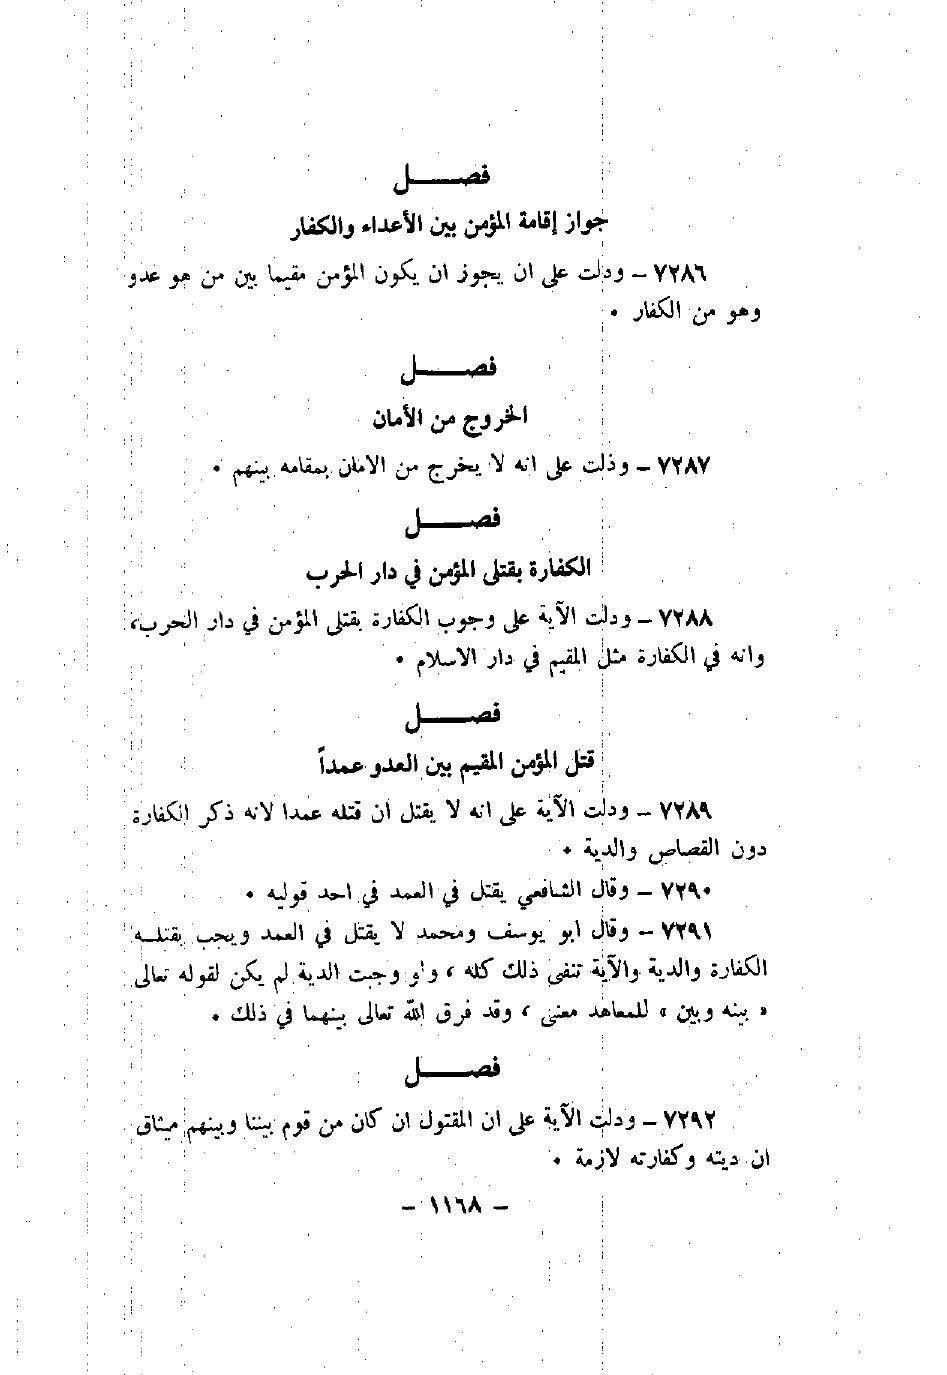 فصـــــل
جواز إقامة المؤمن بين الأعداء والكفار
٧٢٨٦ – ودلت على ان يجوز ان يكون المؤمن مقيما بين من هو عدو
وهو من الكفار •
فصـــــل
الخروج من الأمان
٧٢٨٧ – ودلت على انه لا يخرج من الامان بمقامه بينهم •
فصـــــل
الكفارة بقتلى المؤمن في دار الحرب
٧٢٨٨ – ودلت الآية على وجوب الكفارة بقتلى المؤمن في دار الحرب،
وانه في الكفارة مثل المقيم في دار الاسلام •
فصـــــل
قتل المؤمن المقيم بين العدو عمداً
٧٢٨٩ – ودلت الآية على انه لا يقتل ان قتله عمدا لانه ذكر الكفارة
دون القصاص والدية •
٧٢٩٠ – وقال الشافعي يقتل في العمد في احد قوليه •
٧٢٩١ – وقال ابو يوسف ومحمد لا يقتل في العمد ويجب بقتلـه
الكفارة والدية والآية تنفى ذلك كله ، ولو وجبت الدية لم يكن لقوله تعالى
« بينه وبين » للمعاهد معنى ، وقد فرق الله تعالى بينهما في ذلك •
فصـــــل
٧٢٩٢ – ودلت الآية على ان المقتول ان كان من قوم بيننا وبينهم ميثاق
ان ديته وكفارته لازمة •
– ١١٦٨ –